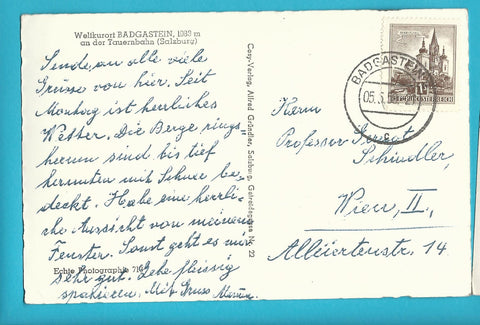 Weltkurort BADGASTEIN, 1083 m
an der Tauernbahn (Salzburg)
Sende an alle viele
Grüsse von hier. Seit
Montag ist herrliches
Wetter. Die Berge rings-
herum sind bis tief
herunten mit Schnee be-
deckt. Habe eine herrli-
che Aussicht von meinem
Fenster. Sonst geht es mir
sehr gut. Gehe fleissig
spazieren. Mit Gruss
Echte Photographie
Cosy-Verlag, Alfred Gründler, Salzburg, Getreidegasse Nr. 22
BADGASTEIN
05.5.
REPUBLIK ÖSTERREICH
Herrn
Professor
Schindler,
Wien, II.,
Alliiertenstr. 14.